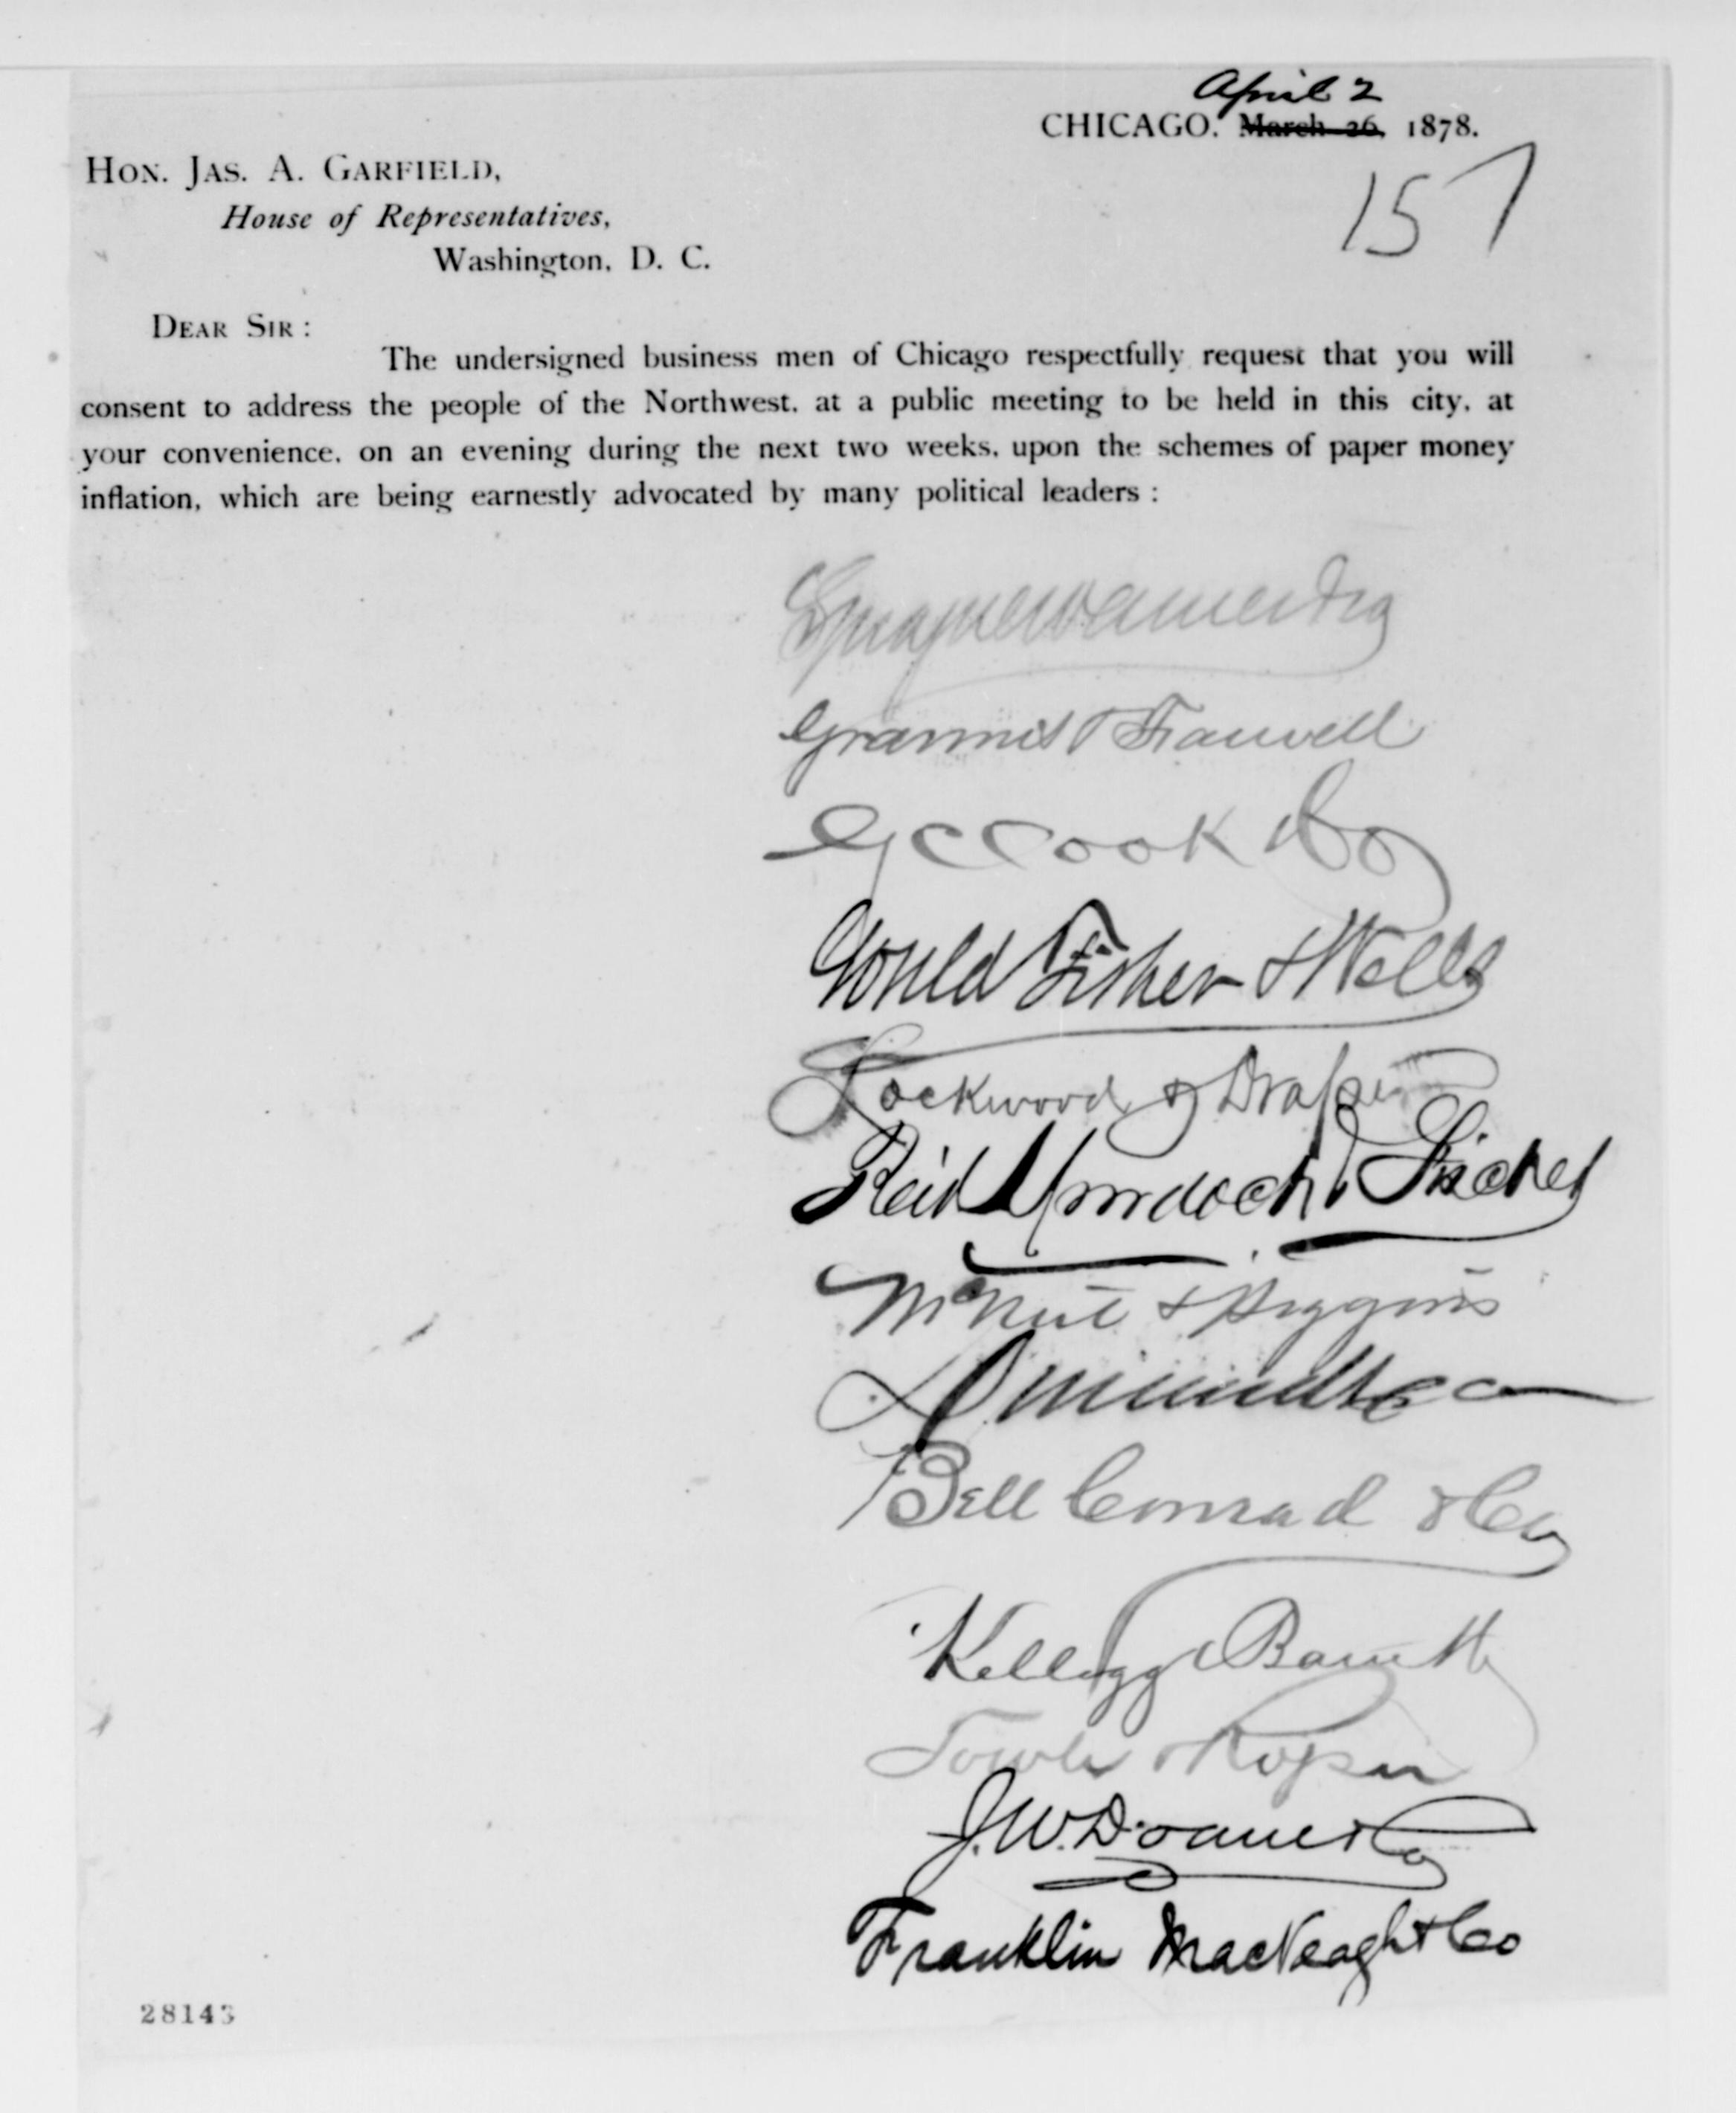 April 2
CHICAGO, March 26, 1878.
157
HON. JAS. A. GARFIELD,
House of Representatives,
Washington, D. C.
DEAR SIR :
The undersigned business men of Chicago respectfully request that you will
consent to address the people of the Northwest, at a public meeting to be held in this city, at
your convenience, on an evening during the next two weeks, upon the schemes of paper money
inflation, which are being earnestly advocated by many political leaders :
Sprague Warner & Co
Grannis & Farwell
G C Cook & Co
Gould Fisher & Wells
Lockwood & Draper
Reid Murdoch & Fischer
& Higgins
& Co
Bell Conrad & Co
Kellogg & Barrett
Towle & Roper
J. W. Doane & Co
Franklin MacVeagh & Co
28143